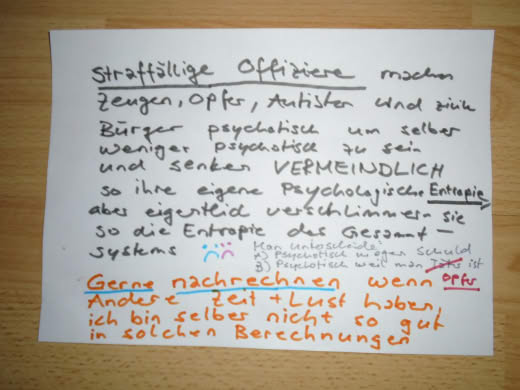 Straffällige Offiziere machen
Zeugen, Opfer, Autisten und zivile
Bürger psychotisch um selber
weniger psychotisch zu sein
und senken VERMEINDLICH
so ihre eigene Psychologische Entropie
aber eigentlich verschlimmern sie
so die Entropie des Gesamt-
systems
Man unterscheide:
A) Psychotisch wegen Schuld
B) Psychotisch weil man Täter ist
Opfer
Gerne nachrechnen wenn
Andere Zeit + Lust haben,
ich bin selber nicht so gut
in solchen Berechnungen